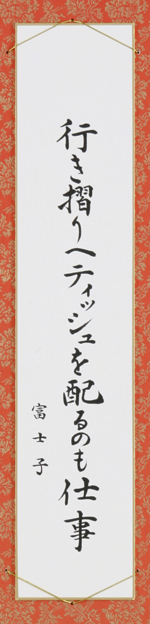 行き摺りへティッシュを配るのも仕事
富士子